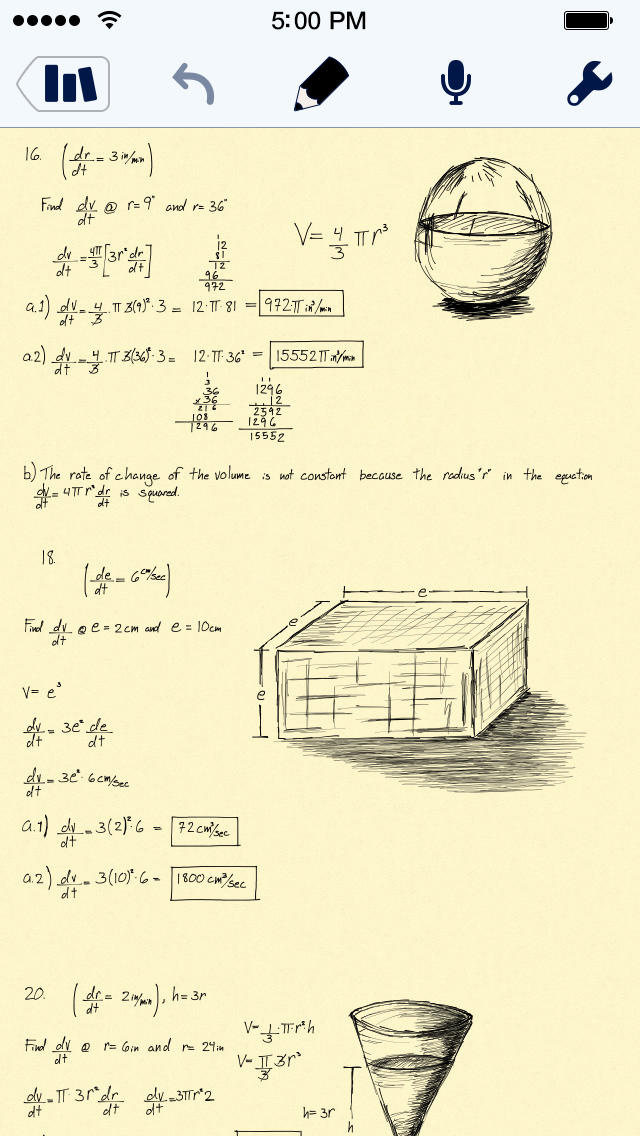 5:00 PM
16. (dr/dt = 3 in/min)
Find dv/dt @ r=9" and r=36"
V= 4/3 πr³
dv/dt = 4π/3 [3r² dr/dt]
1
12
81
12
96
972
a.1) dv/dt = 4/3 · π 3(9)² · 3 = 12·π·81 = 972π in³/min
a.2) dv/dt = 4/3 · π 3(36)² · 3 = 12·π·36² = 15552π in³/min
1
3
36
x36
216
108
1296
1296
12
2592
1296
15552
b) The rate of change of the volume is not constant because the radius "r" in the equation
dv/dt = 4πr² dr/dt is squared.
18.
(de/dt = 6 cm/sec)
Find dv/dt @ e = 2cm and e = 10cm
e
e
e
V= e³
dv/dt = 3e² de/dt
dv/dt = 3e² · 6 cm/sec
a.1) dv/dt = 3(2)² · 6 = 72 cm³/sec
a.2) dv/dt = 3(10)² · 6 = 1800 cm³/sec
20. (dr/dt = 2 in/min), h=3r
Find dv/dt @ r=6in and r=24in
V= 1/3 ·π·r²·h
V= π/3 3r³
dv/dt = π·3r² dr/dt dv/dt = 3πr²2
h=3r
h